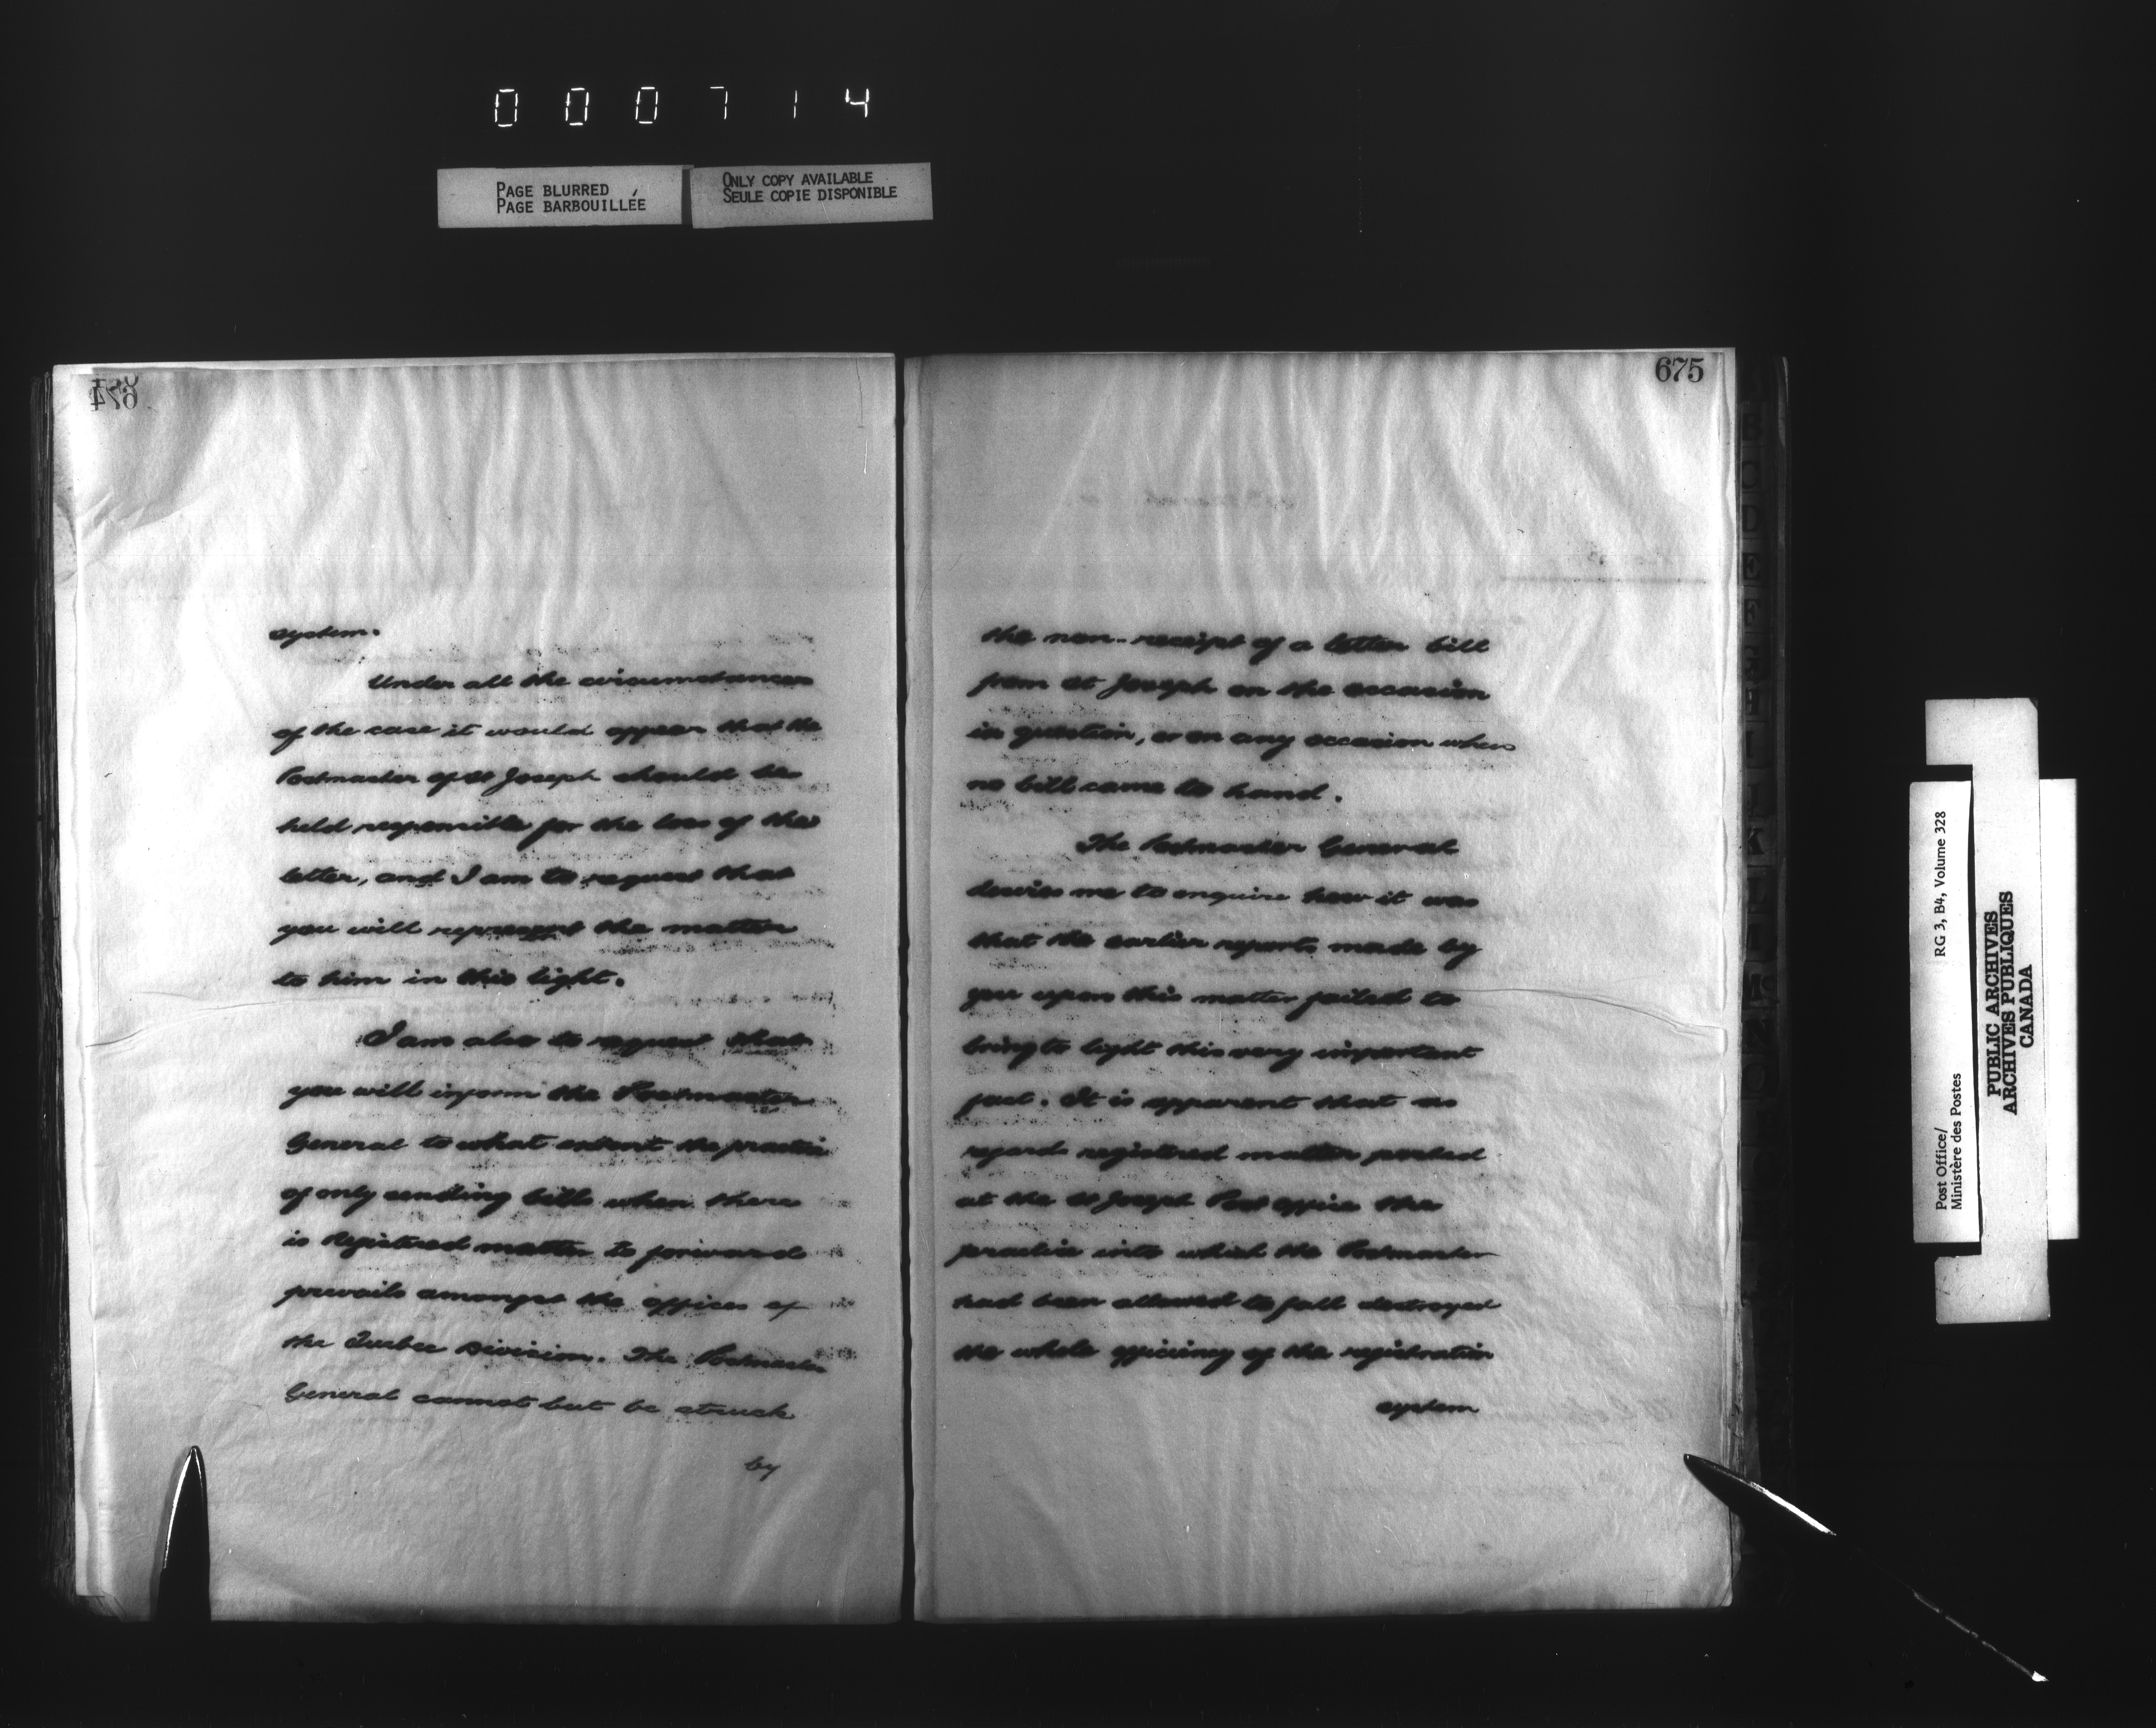 000714
PAGE BLURRED
PAGE BARBOUILLÉE
ONLY COPY AVAILABLE
SEULE COPIE DISPONIBLE
674
system.
Under all the circumstances
of the case it would appear that the
Postmaster of St Joseph should be
held responsible for the loss of the
letter, and I am to request that
you will represent the matter
to him in this light.
I am also to request that
you will inform the Postmaster
General to what extent the practice
of only sending bills when there
is Registered matter to forward
prevails amongst the offices of
the Quebec Division. The Postmaster
General cannot but be struck
by
675
the non-receipt of a letter bill
from St Joseph on the occasion
in question, or on any occasion when
no bill came to hand.
The Postmaster General
desires me to enquire how it was
that the earlier reports made by
you upon this matter failed to
bring to light this very important
fact. It is apparent that as
regards registered matter posted
at the St Joseph Post office the
practice into which the Postmaster
had been allowed to fall destroyed
the whole efficiency of the registration
system
Post Office/
Ministère des Postes
RG 3, B4, Volume 328
PUBLIC ARCHIVES
ARCHIVES PUBLIQUES
CANADA